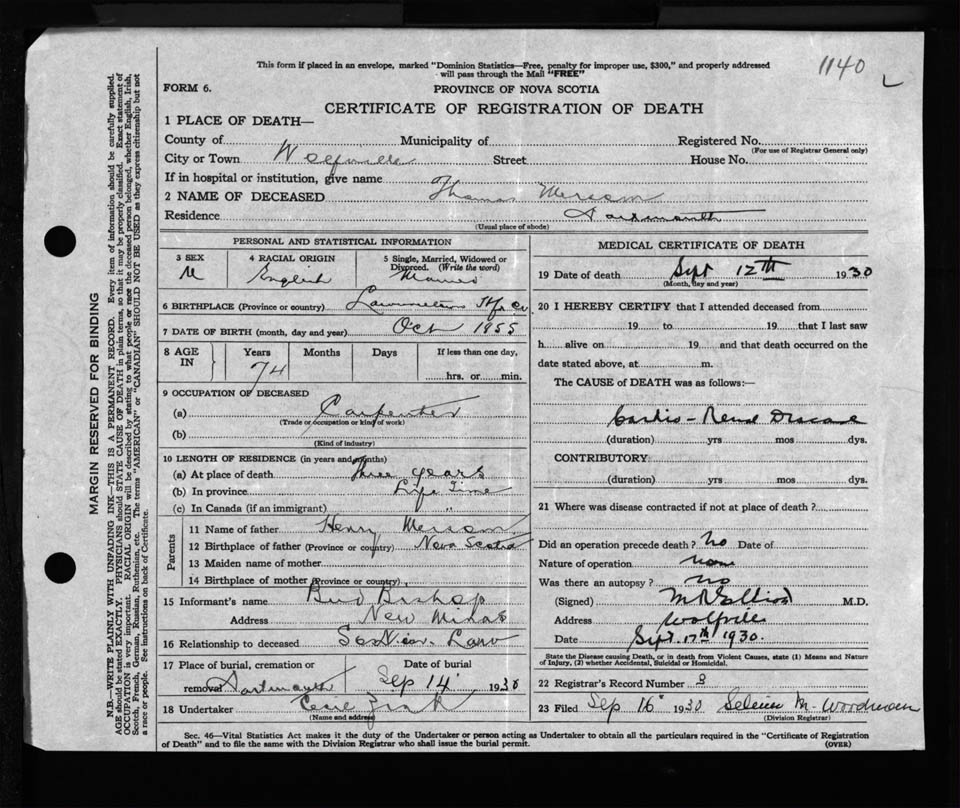 This form if placed in an envelope, marked "Dominion Statistics—Free, penalty for improper use, $300," and properly addressed
will pass through the Mail "FREE"
1140
L
FORM 6.
PROVINCE OF NOVA SCOTIA
CERTIFICATE OF REGISTRATION OF DEATH
1 PLACE OF DEATH—
County of Municipality of Registered No.
(For use of Registrar General only)
City or Town Wolfville Street House No.
If in hospital or institution, give name
2 NAME OF DECEASED Thomas Merson
Residence Dartmouth
(Usual place of abode)
PERSONAL AND STATISTICAL INFORMATION
3 SEX 4 RACIAL ORIGIN 5 Single, Married, Widowed or
Divorced. (Write the word)
M English Married
6 BIRTHPLACE (Province or country)
7 DATE OF BIRTH (month, day and year) Oct 1855
8 AGE IN Years Months Days If less than one day,
74 hrs. or min.
9 OCCUPATION OF DECEASED
(a) Carpenter
(Trade or occupation or kind of work)
(b)
(Kind of industry)
10 LENGTH OF RESIDENCE (in years and months)
(a) At place of death three years
(b) In province Life Time
(c) In Canada (if an immigrant) "
Parents
11 Name of father Henry Merson
12 Birthplace of father (Province or country) Nova Scotia
13 Maiden name of mother
14 Birthplace of mother (Province or country)
15 Informant's name Burd Bishop
Address New Minas
16 Relationship to deceased Son in Law
17 Place of burial, cremation or removal Dartmouth Date of burial Sep 14 1930
18 Undertaker
(Name and address)
MEDICAL CERTIFICATE OF DEATH
19 Date of death Sept 12th 1930
(Month, day and year)
20 I HEREBY CERTIFY that I attended deceased from
19 to 19 that I last saw
h alive on 19 and that death occurred on the
date stated above, at m.
The CAUSE of DEATH was as follows:—
Cardio-Renal Disease
(duration) yrs mos dys.
CONTRIBUTORY:
(duration) yrs mos dys.
21 Where was disease contracted if not at place of death?
Did an operation precede death? No Date of
Nature of operation none
Was there an autopsy? no
(Signed) M.D.
Address Wolfville
Date Sept. 17th 1930.
State the Disease causing Death, or in death from Violent Causes, state (1) Means and Nature
of Injury, (2) whether Accidental, Suicidal or Homicidal.
22 Registrar's Record Number 3
23 Filed Sep 16 1930 M. Woodman
(Division Registrar)
Sec. 46—Vital Statistics Act makes it the duty of the Undertaker or person acting as Undertaker to obtain all the particulars required in the "Certificate of Registration
of Death" and to file the same with the Division Registrar who shall issue the burial permit. (OVER)
MARGIN RESERVED FOR BINDING
N.B.—WRITE PLAINLY WITH UNFADING INK—THIS IS A PERMANENT RECORD. Every item of information should be carefully supplied.
AGE should be stated EXACTLY. PHYSICIANS should STATE CAUSE OF DEATH in plain terms, so that it may be properly classified. Exact statement of
OCCUPATION is very important. RACIAL ORIGIN will be described by stating to what people or race the deceased person belonged, whether English, Irish,
Scotch, French, German, Russian, Ruthenian, etc. The terms "AMERICAN" or "CANADIAN" SHOULD NOT BE USED as they express citizenship but not
a race or people. See instructions on back of Certificate.